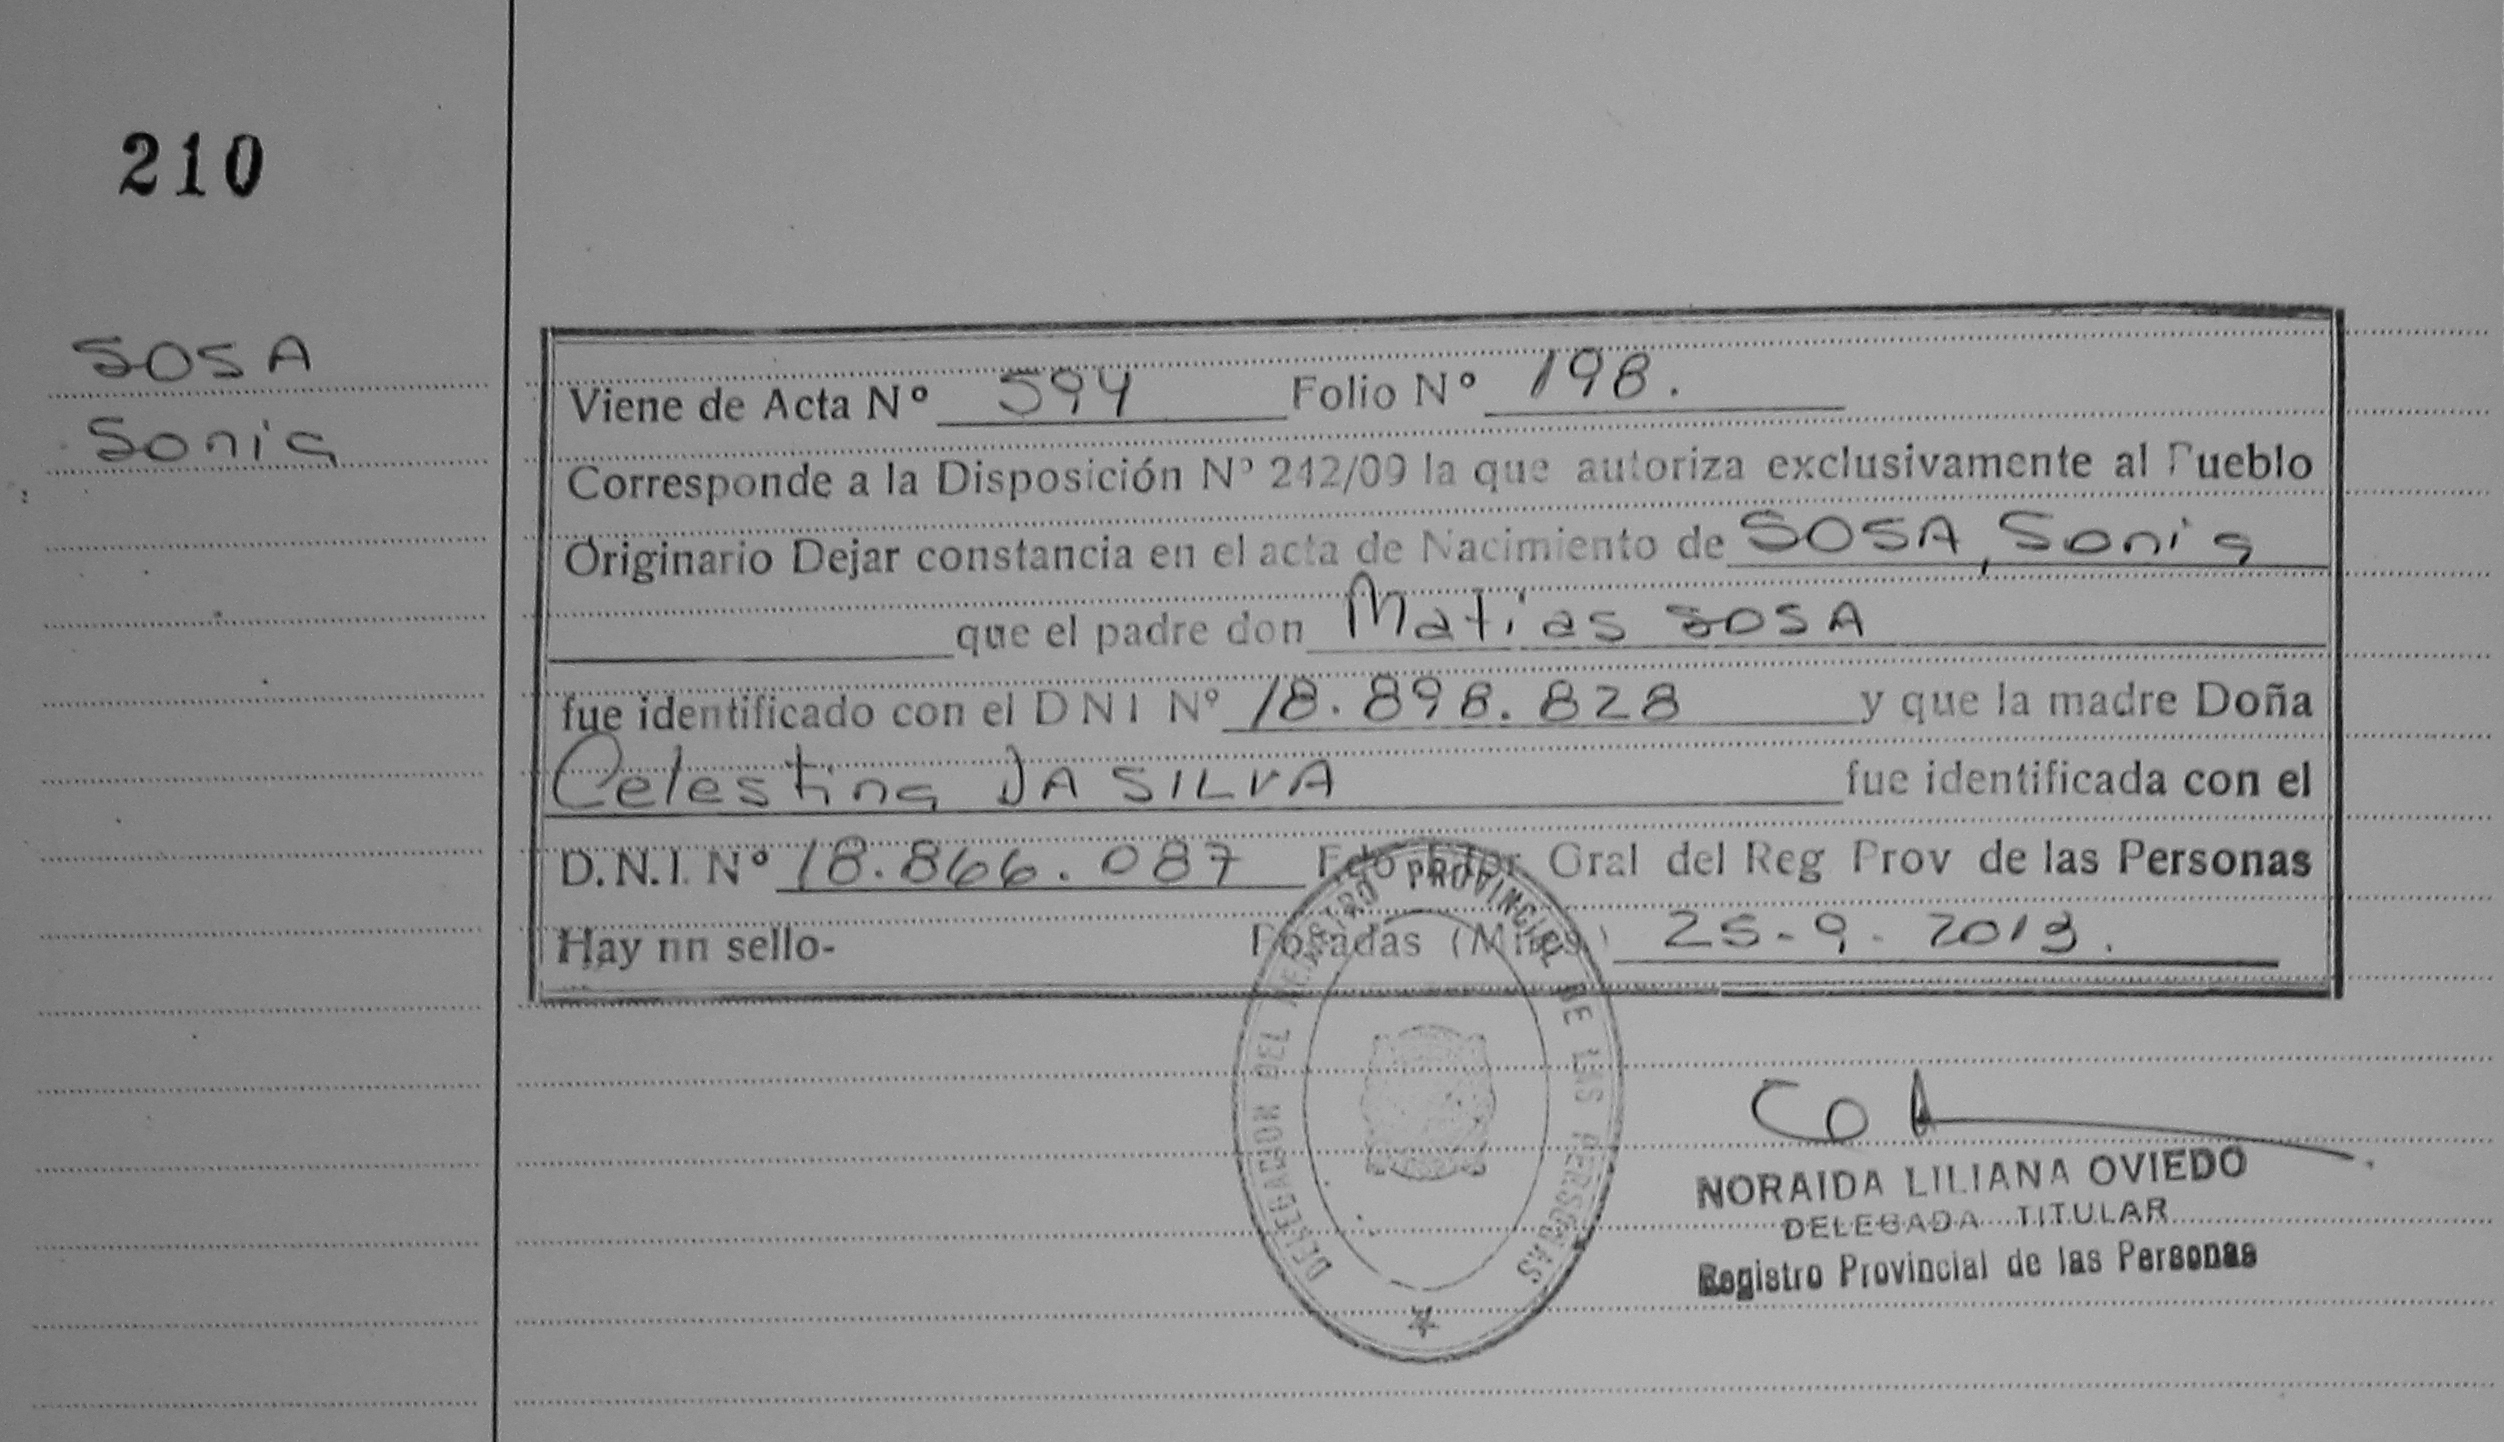 210
SOSA
Sonia
Viene de Acta Nº 594 Folio Nº 198.
Corresponde a la Disposición Nº 242/09 la que autoriza exclusivamente al Pueblo
Originario Dejar constancia en el acta de Nacimiento de SOSA, Sonia
que el padre don Matías SOSA
fue identificado con el DNI Nº 18.898.828 y que la madre Doña
Celestina DA SILVA fue identificada con el
D.N.I. Nº 18.866.087 Fdo Dtor Gral del Reg Prov de las Personas
Hay nn sello- Posadas (Mnes) 25-9-2013.
DELEGACION DEL REGISTRO PROVINCIAL DE LAS PERSONAS
NORAIDA LILIANA OVIEDO
DELEGADA TITULAR
Registro Provincial de las Personas